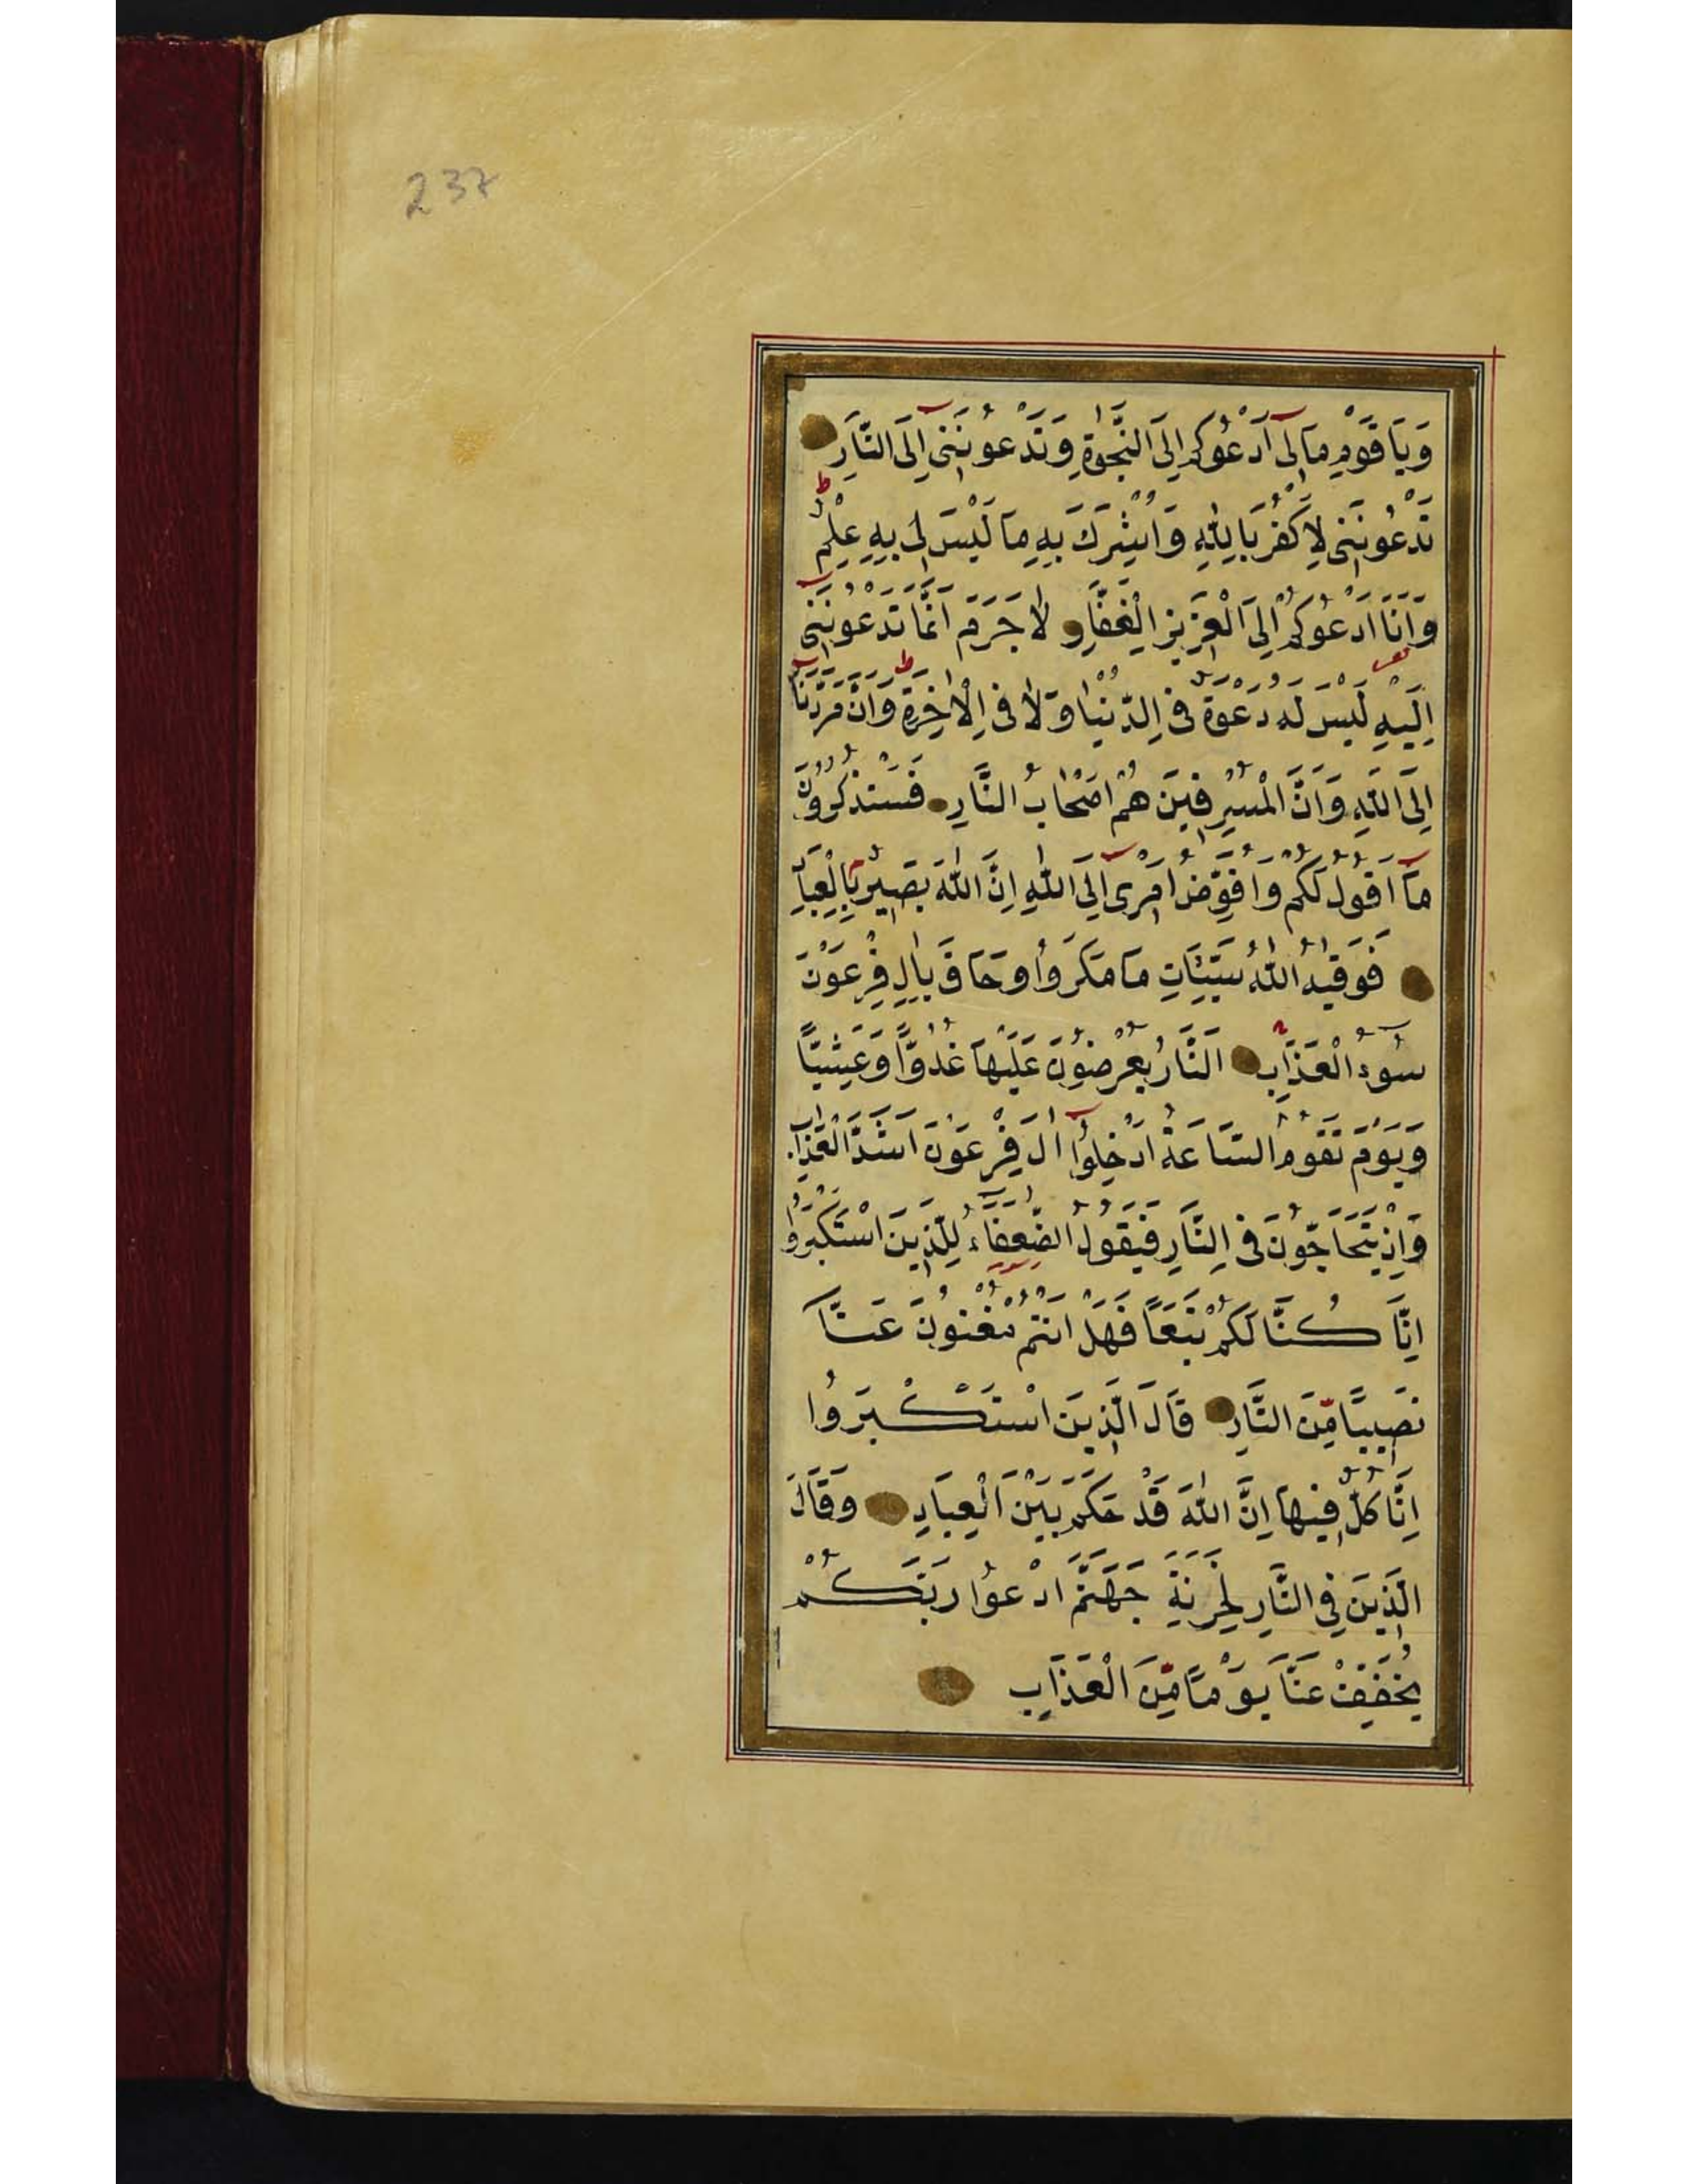 237
وَيَا قَوْمِ مَا لِىٓ اَدْعُوكُمْ اِلَى النَّجٰوةِ وَتَدْعُونَنِىٓ اِلَى النَّارِ
تَدْعُونَنِى لِاَكْفُرَ بِاللّٰهِ وَاُشْرِكَ بِهِ مَا لَيْسَ لِى بِهِ عِلْمٌ ط
وَاَنَا اَدْعُوكُمْ اِلَى الْعَزِيزِ الْغَفَّارِ لَا جَرَمَ اَنَّمَا تَدْعُونَنِىٓ
اِلَيْهِ لَيْسَ لَهُ دَعْوَةٌ فِى الدُّنْيَا وَلَا فِى الْاٰخِرَةِ ط وَاَنَّ مَرَدَّنَآ
اِلَى اللّٰهِ وَاَنَّ الْمُسْرِفِينَ هُمْ اَصْحَابُ النَّارِ فَسَتَذْكُرُونَ
مَآ اَقُولُ لَكُمْ وَاُفَوِّضُ اَمْرِىٓ اِلَى اللّٰهِ اِنَّ اللّٰهَ بَصِيرٌ بِالْعِبَادِ
فَوَقٰيهُ اللّٰهُ سَيِّئَاتِ مَا مَكَرُوا وَحَاقَ بِاٰلِ فِرْعَوْنَ
سُوٓءُ الْعَذَابِ اَلنَّارُ يُعْرَضُونَ عَلَيْهَا غُدُوًّا وَعَشِيًّا
وَيَوْمَ تَقُومُ السَّاعَةُ اَدْخِلُوٓا اٰلَ فِرْعَوْنَ اَشَدَّ الْعَذَابِ
وَاِذْ يَتَحَاجُّونَ فِى النَّارِ فَيَقُولُ الضُّعَفٰٓاءُ لِلَّذِينَ اسْتَكْبَرُوٓا
اِنَّا كُنَّا لَكُمْ تَبَعًا فَهَلْ اَنْتُمْ مُغْنُونَ عَنَّا
نَصِيبًا مِّنَ النَّارِ قَالَ الَّذِينَ اسْتَكْبَرُوا
اِنَّا كُلٌّ فِيهَا اِنَّ اللّٰهَ قَدْ حَكَمَ بَيْنَ الْعِبَادِ وَقَالَ
الَّذِينَ فِى النَّارِ لِخَزَنَةِ جَهَنَّمَ ادْعُوا رَبَّكُمْ
يُخَفِّفْ عَنَّا يَوْمًا مِّنَ الْعَذَابِ